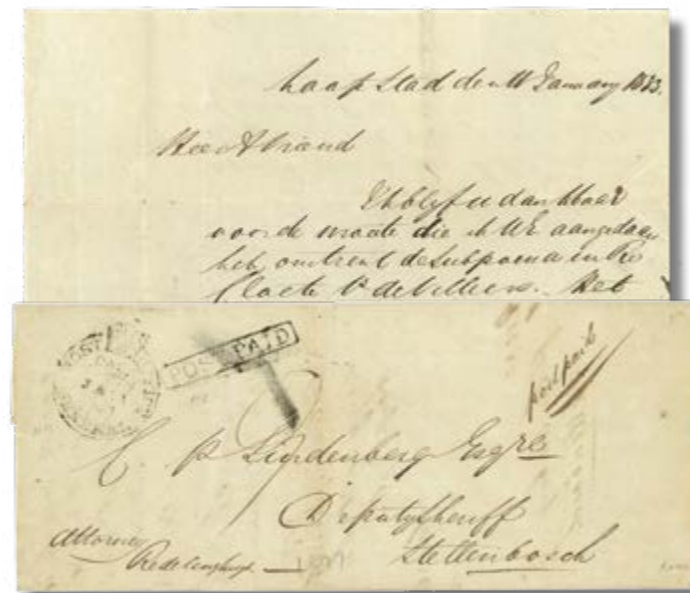 Kaapstad den 11 January 1853.
Hee A Vriend
Ik blyf u dankbaar
voor de moeite die ik UE aangedaan
heb omtrent de Subpoena in Re
Cloete Vs de Villiers. Het
POST PAID
post paid
C. P. Lindenberg Esqre
Deputy Sheriff
Stellenbosch
Attorney
Redelinghuys